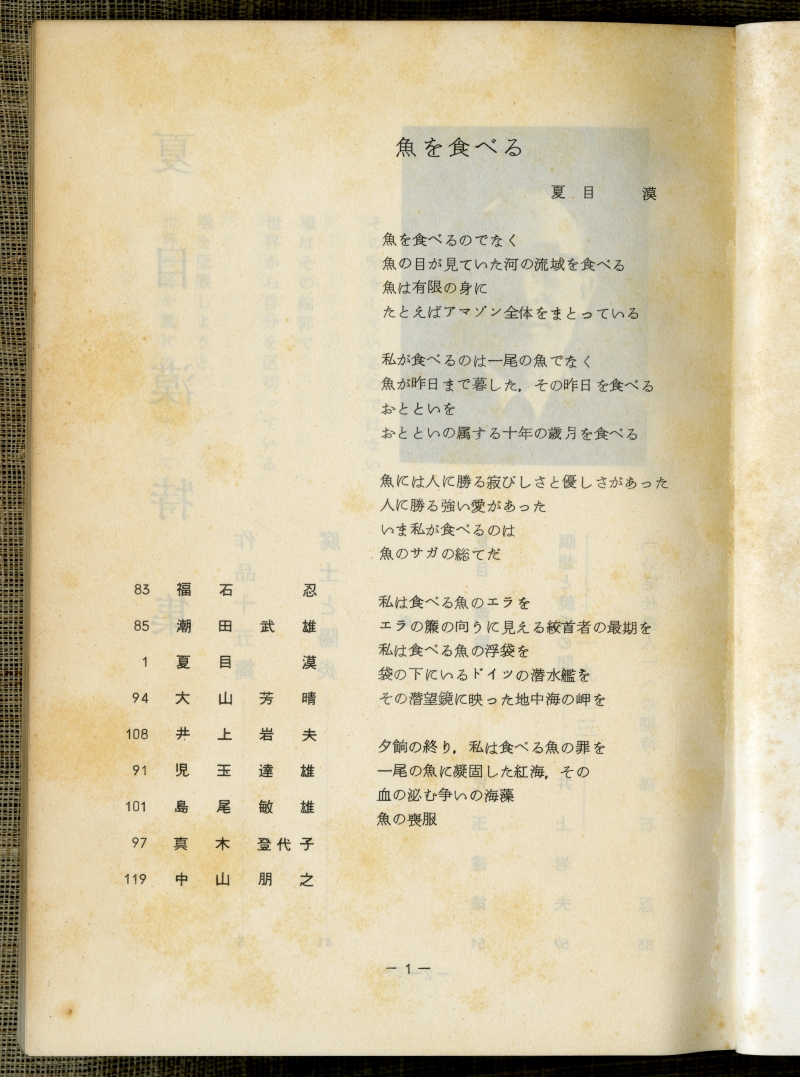 魚を食べる
夏目 漠
魚を食べるのでなく
魚の目が見ていた河の流域を食べる
魚は有限の身に
たとえばアマゾン全体をまとっている
私が食べるのは一尾の魚でなく
魚が昨日まで暮した,その昨日を食べる
おとといを
おとといの属する十年の歳月を食べる
魚には人に勝る寂びしさと優しさがあった
人に勝る強い愛があった
いま私が食べるのは
魚のサガの総てだ
私は食べる魚のエラを
エラの簾の向うに見える絞首者の最期を
私は食べる魚の浮袋を
袋の下にいるドイツの潜水艦を
その潜望鏡に映った地中海の岬を
夕餉の終り,私は食べる魚の罪を
一尾の魚に凝固した紅海,その
血の泌む争いの海藻
魚の喪服
83 福石 忍
85 潮田武雄
1 夏目 漠
94 大山芳晴
108 井上岩夫
91 児玉達雄
101 島尾敏雄
97 真木登代子
119 中山朋之
— 1 —